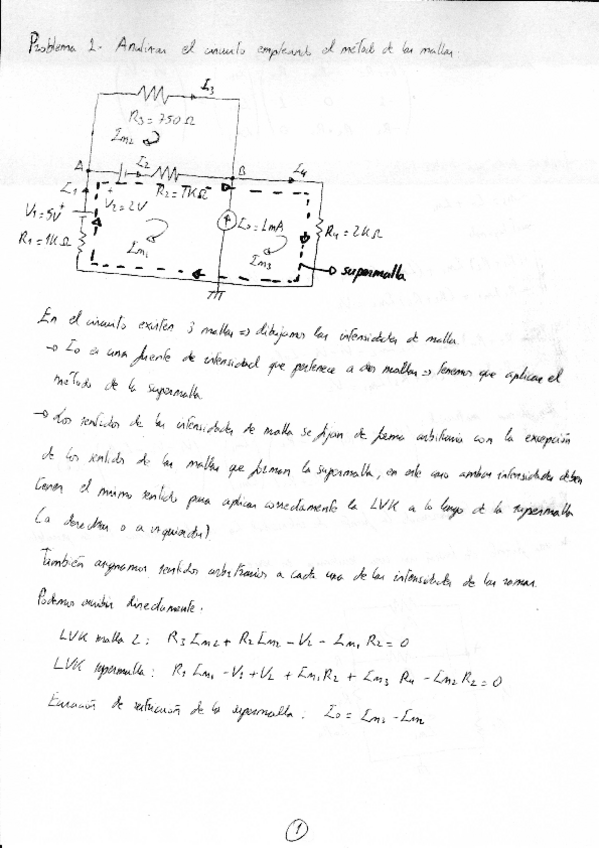 Problema 2- Analizar el circuito empleando el método de las mallas.
I3
R3 = 750Ω
Im2
A
I2
B
I4
I1
+
V2 = 2V
R2 = 1KΩ
V1 = 5V
+
I0 = 1mA
R4 = 2KΩ
R1 = 1KΩ
Im1
Im3
supermalla
En el circuito existen 3 mallas => dibujamos las intensidades de malla.
→ I0 es una fuente de intensidad que pertenece a dos mallas => tenemos que aplicar el
método de la supermalla
→ Los sentidos de las intensidades de malla se fijan de forma arbitraria con la excepción
de los sentidos de las mallas que forman la supermalla, en este caso ambas intensidades deben
tener el mismo sentido para aplicar correctamente la LVK a lo largo de la supermalla
(a derechas o a izquierdas)
También asignamos sentidos arbitrarios a cada una de las intensidades de las ramas.
Podemos escribir directamente:
LVK malla 2: R3 Im2 + R2 Im2 - V2 - Im1 R2 = 0
LVK supermalla: R1 Im1 - V1 + V2 + Im1 R2 + Im3 R4 - Im2 R2 = 0
Ecuación de restricción de la supermalla: I0 = Im3 -
1